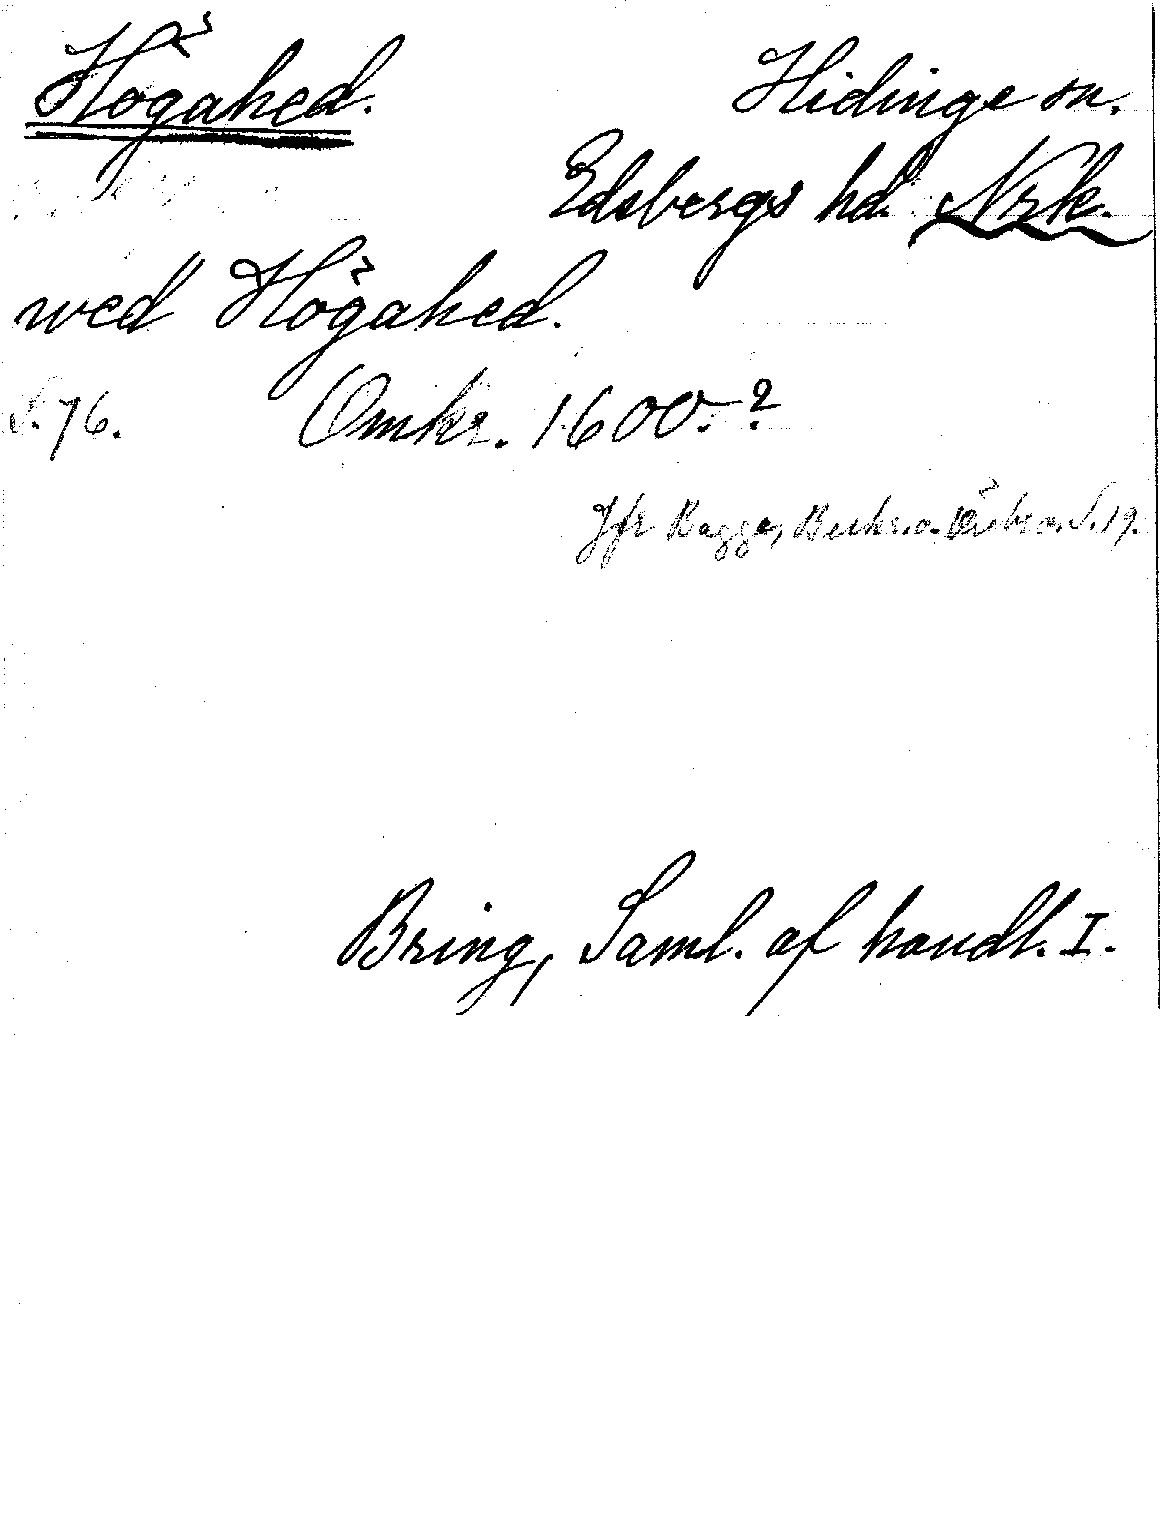 Högahed. Hidinge sn.
Edsbergs hd. Nrk.
wed Högahed.
S. 76. Omkr. 1600.?
Jfr Bagge, Beskr. o. Örebro. S. 19.
Bring, Saml. af handl. I.